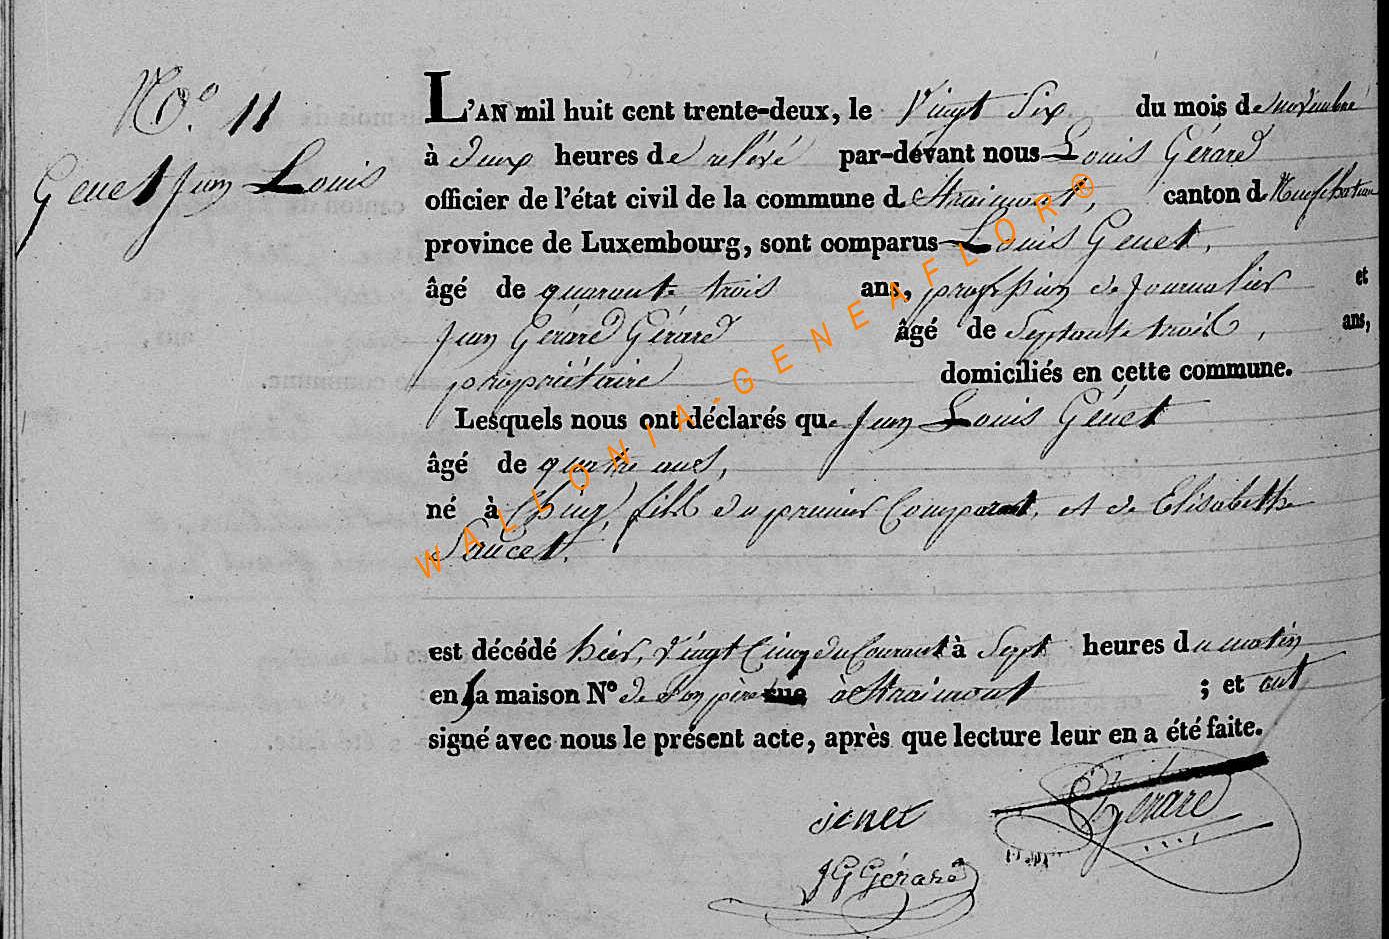 No. 11
Genet Jean Louis
L'AN mil huit cent trente-deux, le Vingt Six du mois de novembre
à deux heures de relévé par-devant nous Louis Gérard
officier de l'état civil de la commune de Straimont, canton de Neufchateau
province de Luxembourg, sont comparus Louis Genet,
âgé de quarante trois ans, profession de Journalier et
Jean Gérard Gérard âgé de Septante trois, ans,
propriétaire domiciliés en cette commune.
Lesquels nous ont déclarés que Jean Louis Génet
âgé de ans,
né à Chiny, fils du premier Comparant, et de Elisabeth
est décédé hier, vingt Cinq du Courant à Sept heures du matin
en la maison No de Son père rue à Straimont ; et ont
signé avec nous le présent acte, après que lecture leur en a été faite.
jenet
Gérard
JG Gérard
WALLONIA-GENEAFLOR®